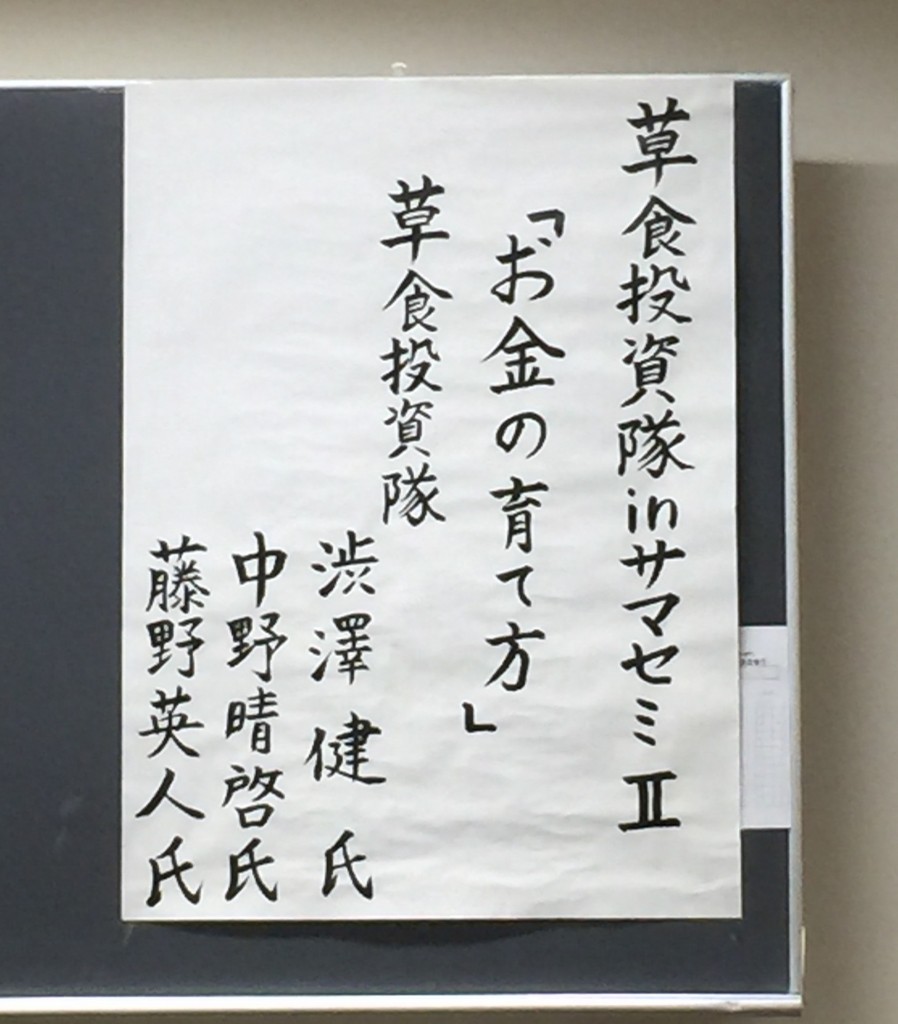 草食投資隊inサマセミⅡ
「お金の育て方」
草食投資隊
渋澤健氏
中野晴啓氏
藤野英人氏